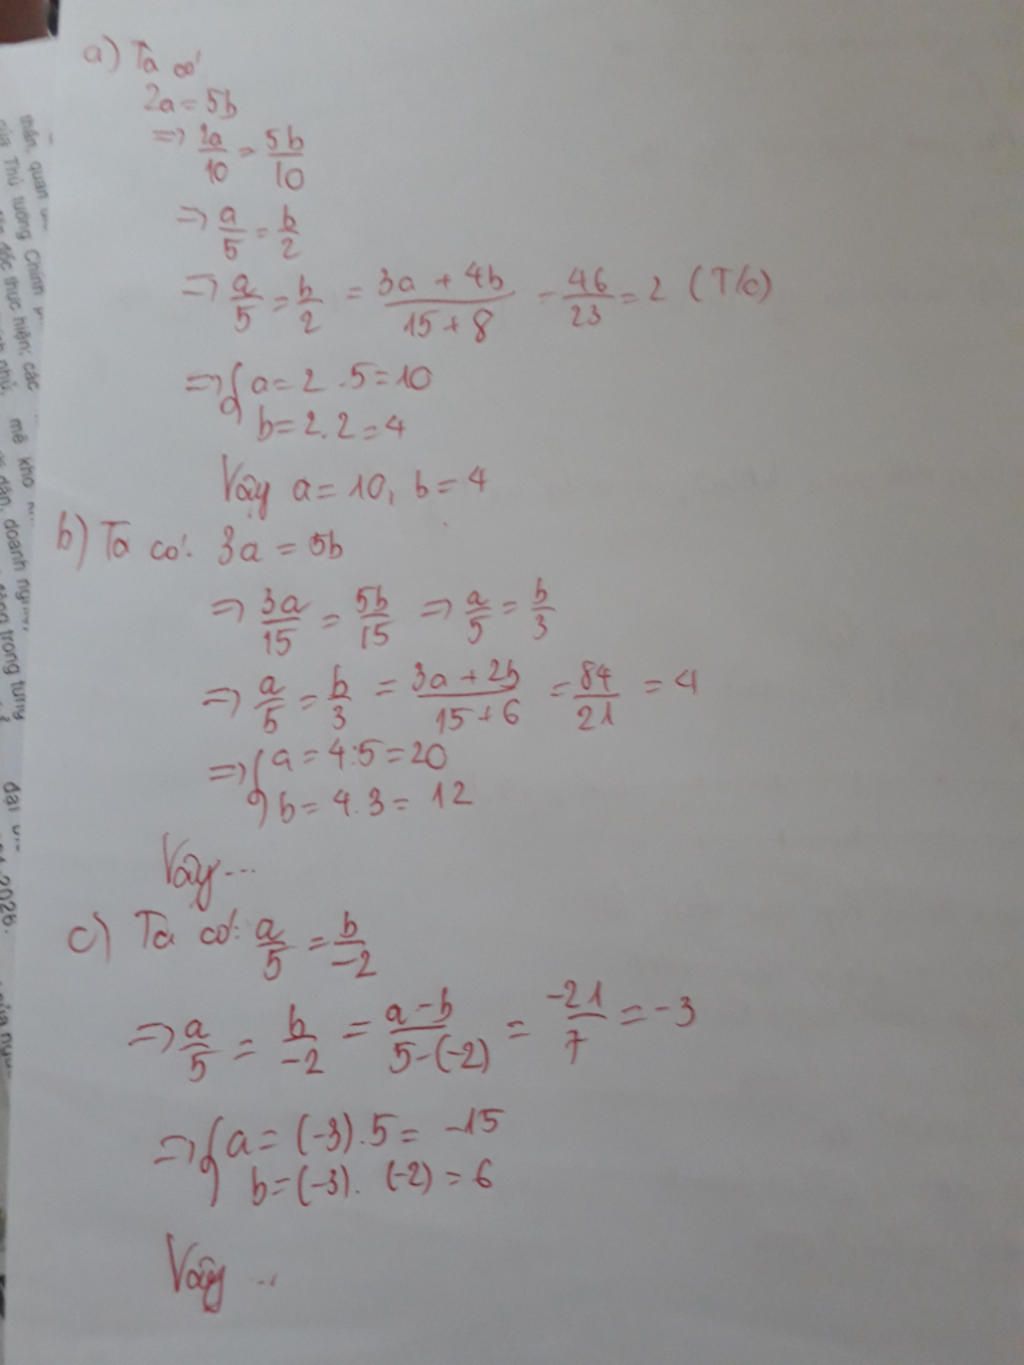 a) Ta có
2a = 5b
=> 2a/10 = 5b/10
=> a/5 = b/2
=> a/5 = b/2 = 3a + 4b/15 + 8 = 46/23 = 2 (T/c)
=> { a = 2 . 5 = 10
b = 2. 2 = 4
Vậy a = 10, b = 4
b) Ta có: 3a = 5b
=> 3a/15 = 5b/15 => a/5 = b/3
=> a/5 = b/3 = 3a + 2b/15 + 6 = 84/21 = 4
=> { a = 4.5 = 20
b = 4.3 = 12
Vậy...
c) Ta có: a/5 = b/-2
=> a/5 = b/-2 = a - b/5-(-2) = -21/7 = -3
=> { a = (-3).5 = -15
b = (-3). (-2) = 6
Vậy ..
thần, quan
của Thủ tướng Chính
đốc thực hiện; các
mê kho
dân, doanh
trong từng
đại
2026.